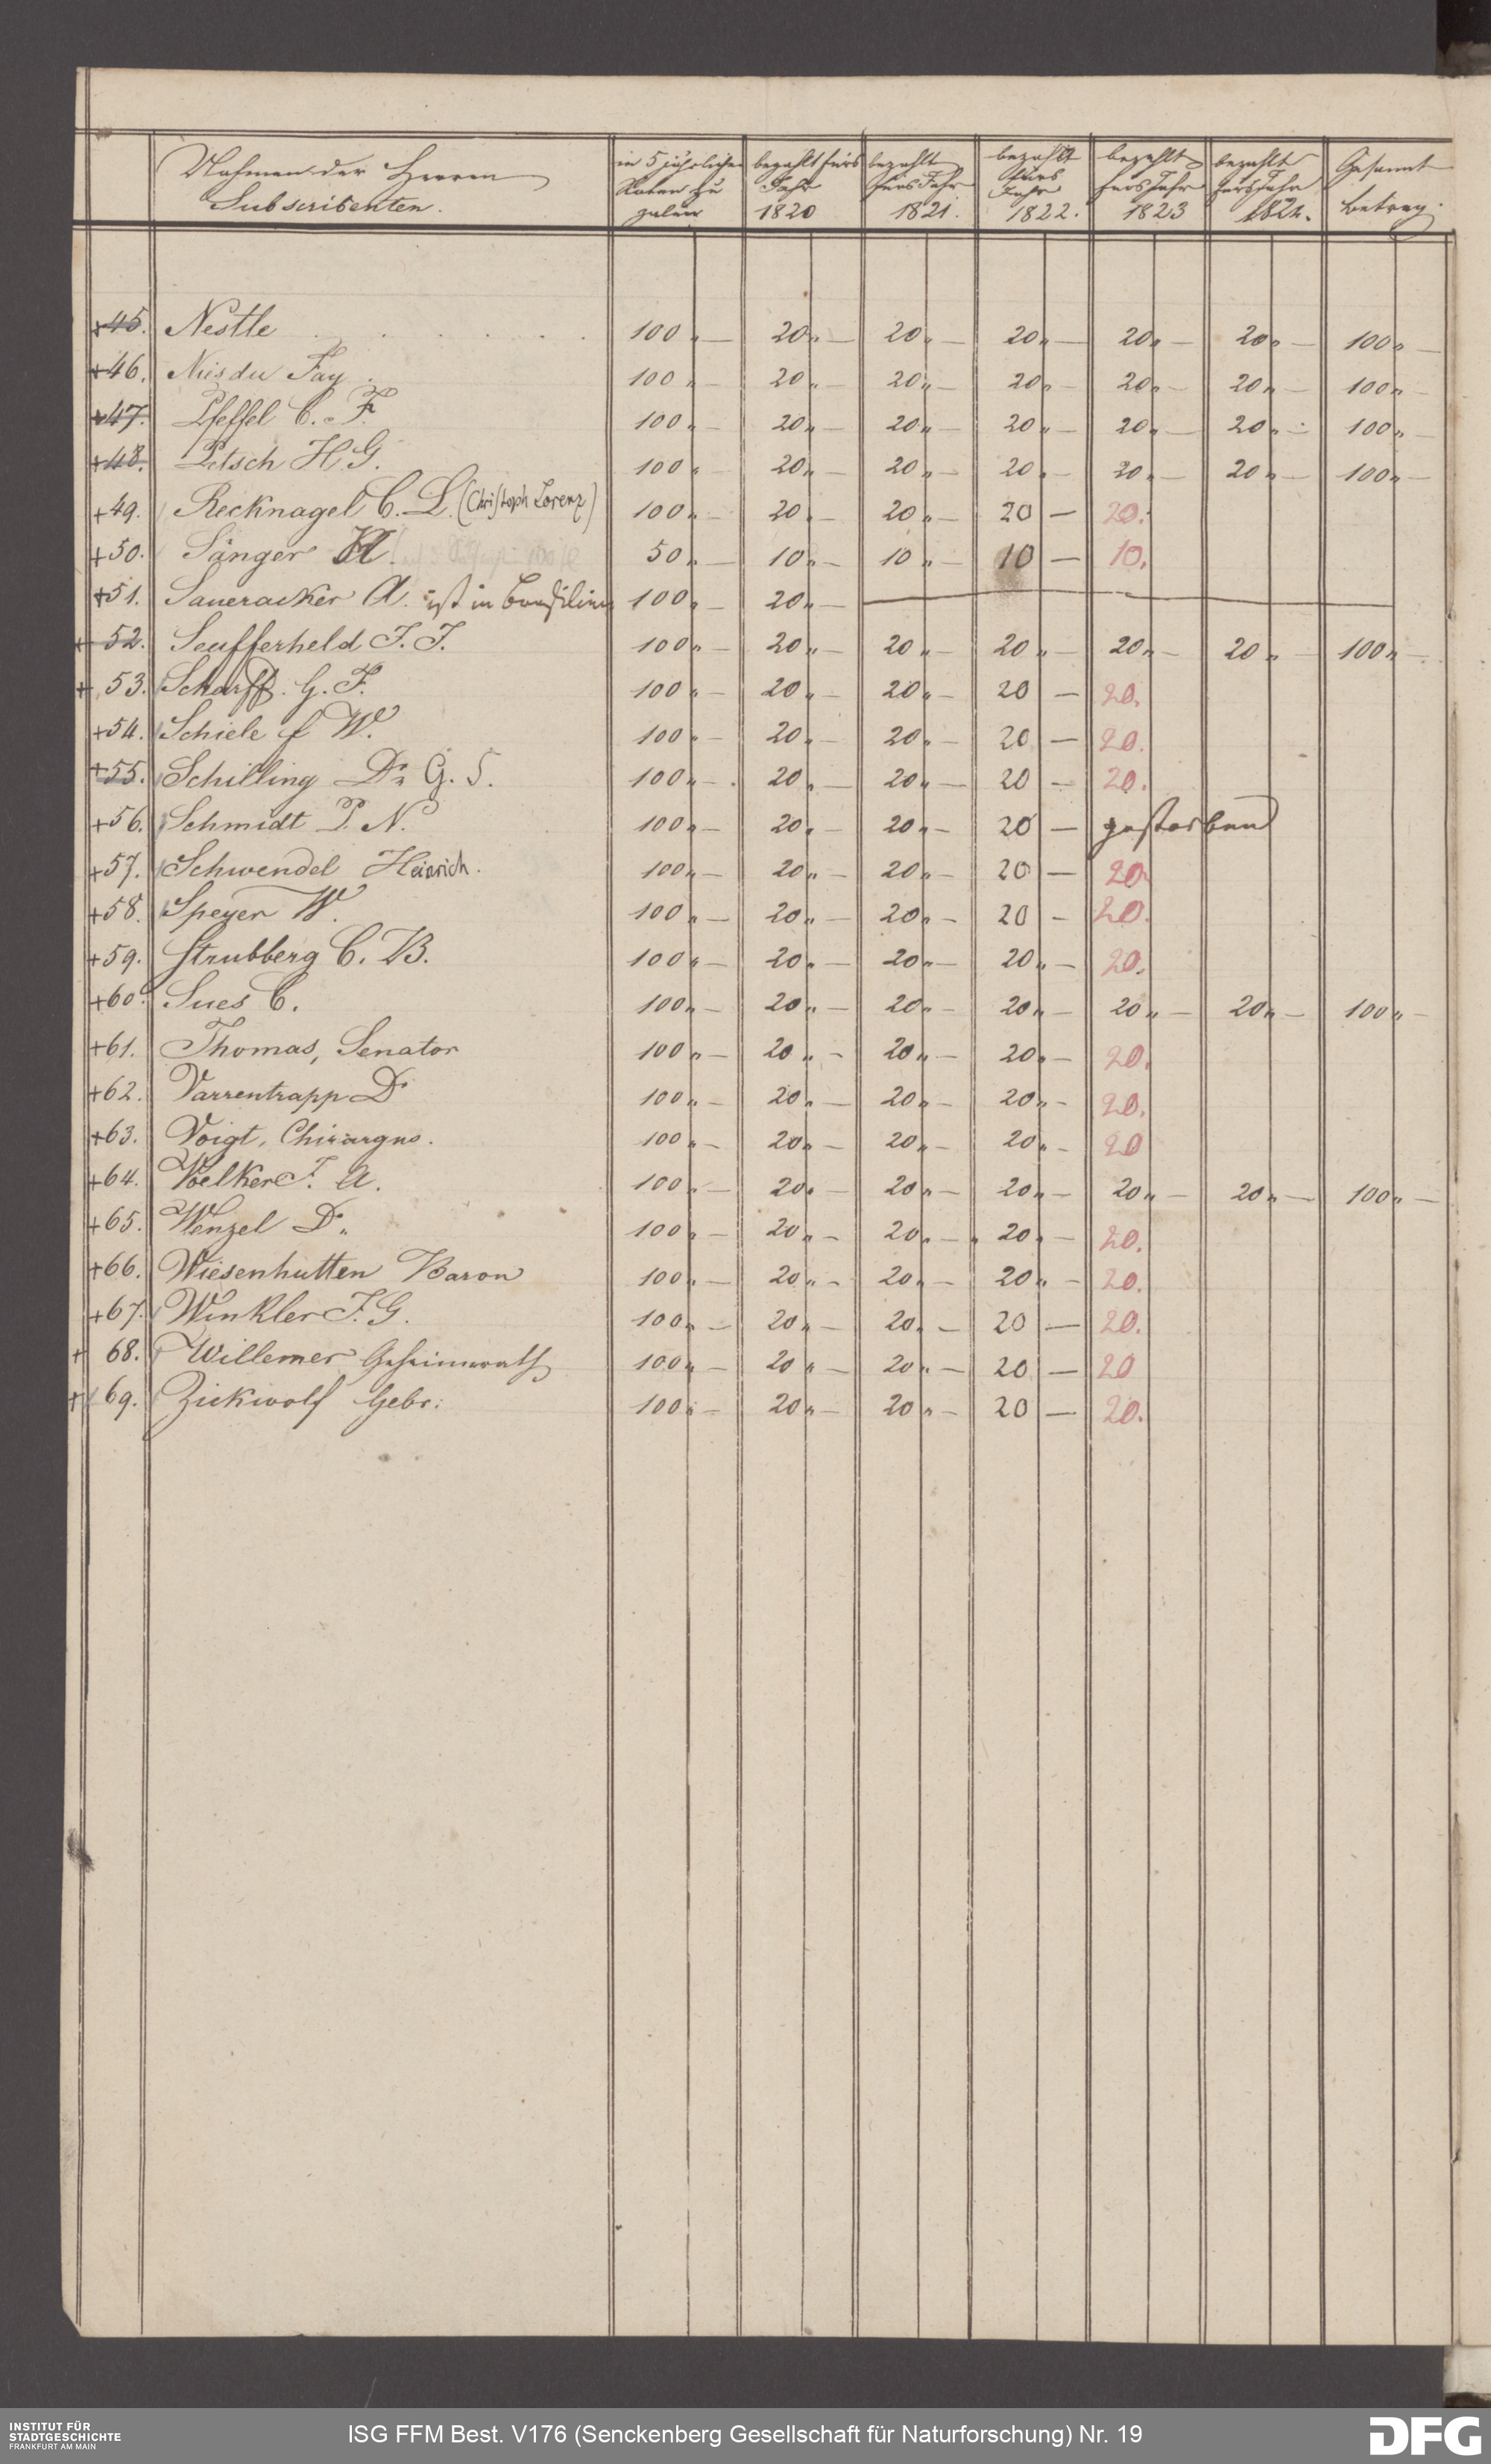 Nahmen der Herren in 5 jährlichen bezahlt fürs bezahlt bezahlt bezahlt bezahlt Gesammt
Subscribenten. Raten zu Jahr fürs Jahr fürs Jahr fürs Jahr fürs Jahr betrag.
zalen 1820 1821. 1822. 1823 1824.
+45. Nestle . . . . . . 100 „ — 20 „ — 20 „ — 20 „ — 20 „ — 20 „ — 100 „ —
+46. Nies du Fay . 100 „ — 20 „ — 20 „ — 20 „ — 20 „ — 20 „ — 100 „ —
+47. Pfeffel C. F. 100 „ — 20 „ — 20 „ — 20 „ — 20 „ — 20 „ — 100 „ —
+48. Petsch H G. 100 „ — 20 „ — 20 „ — 20 „ — 20 „ — 20 „ — 100 „ —
+49. Recknagel C. L. (Christoph Lorenz) 100 „ — 20 „ — 20 „ — 20 — 20.
+50. Sänger 50 „ — 10 „ — 10 „ — 10 — 10.
+51. Saueracker A. ist in Brasilien 100 „ — 20 „ —
+52. Seufferheld J. J. 100 „ — 20 „ — 20 „ — 20 „ — 20 „ — 20 „ — 100 „ —
+53. Scharff. G. F. 100 „ — 20 „ — 20 „ — 20 — 20.
+54. Schiele f W. 100 „ — 20 „ — 20 „ — 20 — 20.
+55. Schilling Dr G. S. 100 „ — 20 „ — 20 „ — 20 — 20.
+56. Schmidt P. N. 100 „ — 20 „ — 20 „ — 20 — gestorben
+57. Schwendel Heinrich. 100 „ — 20 „ — 20 „ — 20 — 20
+58. Speyer W. 100 „ — 20 „ — 20 „ — 20 — 20.
+59. Strubberg C. B. 100 „ — 20 „ — 20 „ — 20 „ — 20.
+60. Sues C. 100 „ — 20 „ — 20 „ — 20 „ — 20 „ — 20 „ — 100 „ —
+61. Thomas, Senator 100 „ — 20 „ — 20 „ — 20 „ — 20.
+62. Varrentrapp Dr 100 „ — 20 „ — 20 „ — 20 „ — 20.
+63. Voigt, Chirurgus. 100 „ — 20 „ — 20 „ — 20 „ — 20
+64. Voelker J. A. 100 „ — 20 „ — 20 „ — 20 „ — 20 „ — 20 „ — 100 „ —
+65. Wenzel Dr. 100 „ — 20 „ — 20 „ — 20 „ — 20.
+66. Wiesenhutten Baron 100 „ — 20 „ — 20 „ — 20 „ — 20.
+67. Winkler J. G. 100 „ — 20 „ — 20 „ — 20 — 20.
+ 68. Willemer Geheimerath 100 „ — 20 „ — 20 „ — 20 — 20
+ 69. Zickwolf Gebr: 100 „ — 20 „ — 20 „ — 20 — 20.
INSTITUT FÜR
STADTGESCHICHTE
FRANKFURT AM MAIN
ISG FFM Best. V176 (Senckenberg Gesellschaft für Naturforschung) Nr. 19
DFG